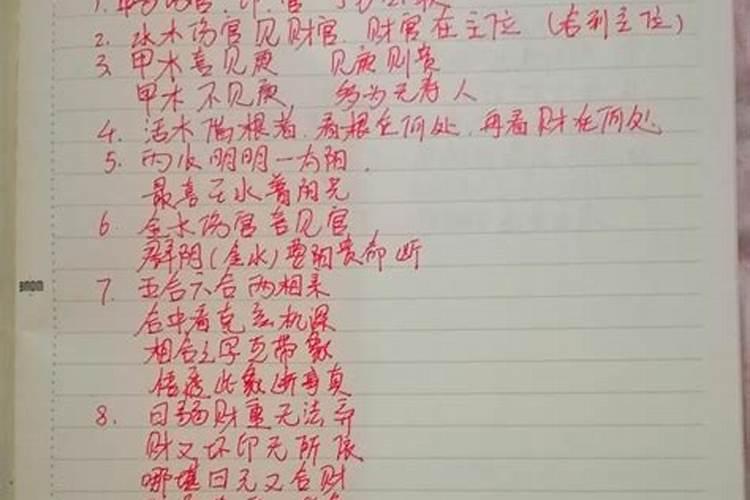 2. 水木伤官见财官. 财官在主位 (右利主位)
3. 甲木喜见庚 见庚则贵
甲木不见庚, 多为无寿人
4. 活木 根者. 看根在何处. 再看财在何处
5. 丙火明明一为阳.
最喜壬水 阳光
6. 金水伤官喜见官
群阴(金水) 要阳贵命断
7. 五合六合两相
合中看克玄机深
相合 带象
悟透此象断事真
8. 日弱财重无法
财又坏印无所
哪堪日元又合财